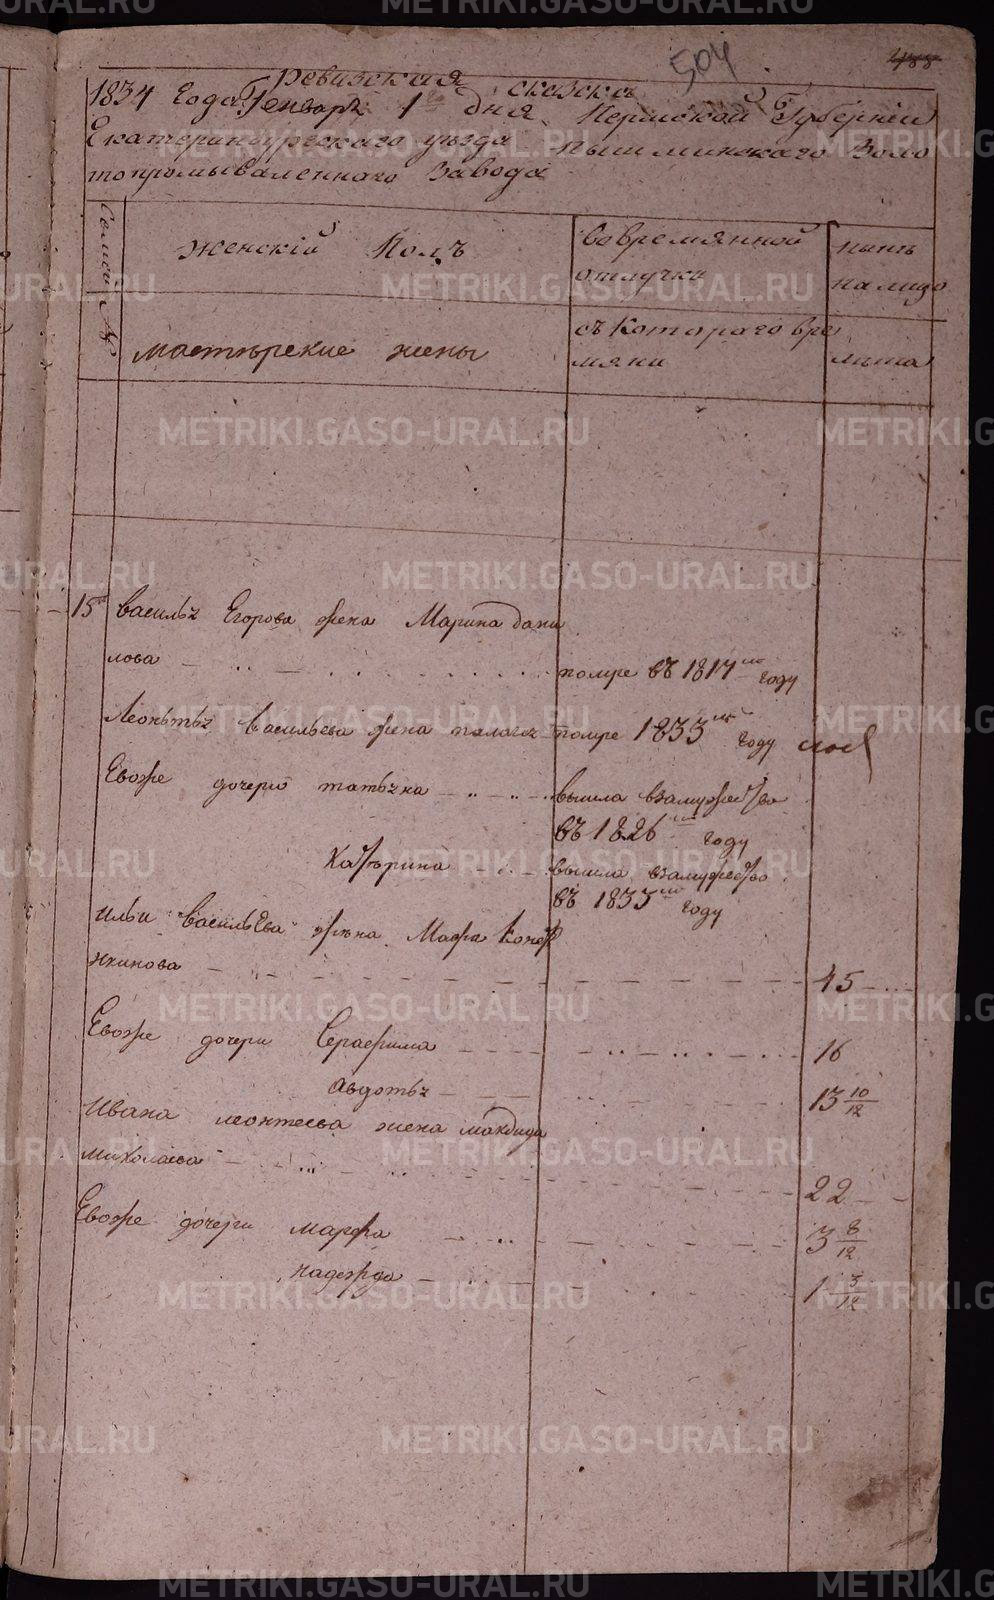 504
488
ревизская сказка
1834 Года Генваря 1 дня Пермской Губерний
Екатеринбургскаго уезда Пышминскаго Золо
топромываленнаго Завода
Семей №
женскій Полъ
Во времянной отлучке
ныне на лицо
мастерские жены
съ Котораго вре
мяни
лета
15 василья Егорова жена Марина дани
лова помре въ 1817 году
Леонтья Васильева жена палагея помре 1833 году
Евоже дочери татьяна вышла взамужество
въ 1826 году
Катерина вышла взамужество
въ 1833 году
ильи васильева жена Марфа
45
Евоже дочери Серафима 16
Авдотья 13 10/12
ивана леонтьева жена
михолаева 22
Евоже дочери марфа 3 8/12
надежда 1 3/12
METRIKI.GASO-URAL.RU